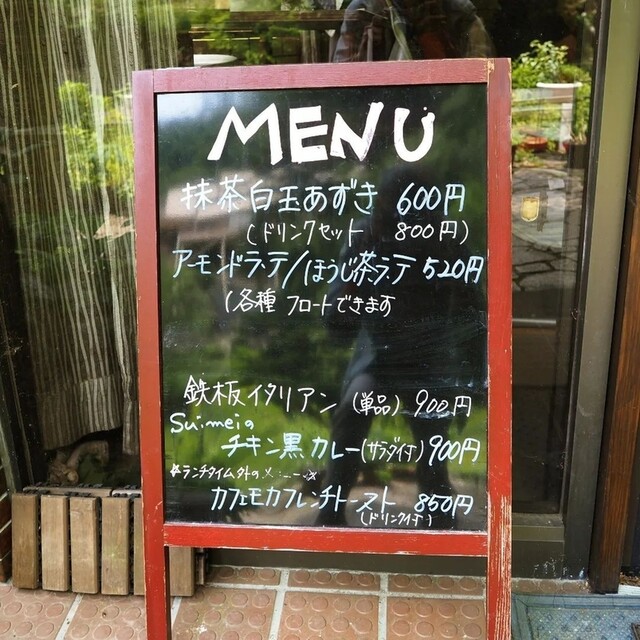 MENU
抹茶白玉あずき 600円
(ドリンクセット 800円)
アーモンドラテ/ほうじ茶ラテ 520円
(各種 フロートできます
鉄板イタリアン (単品) 900円
Suimeiの
チキン黒カレー(サラダ付) 900円
☆ランチタイム外の
カフェモカフレンチトースト 850円
(ドリンク付)